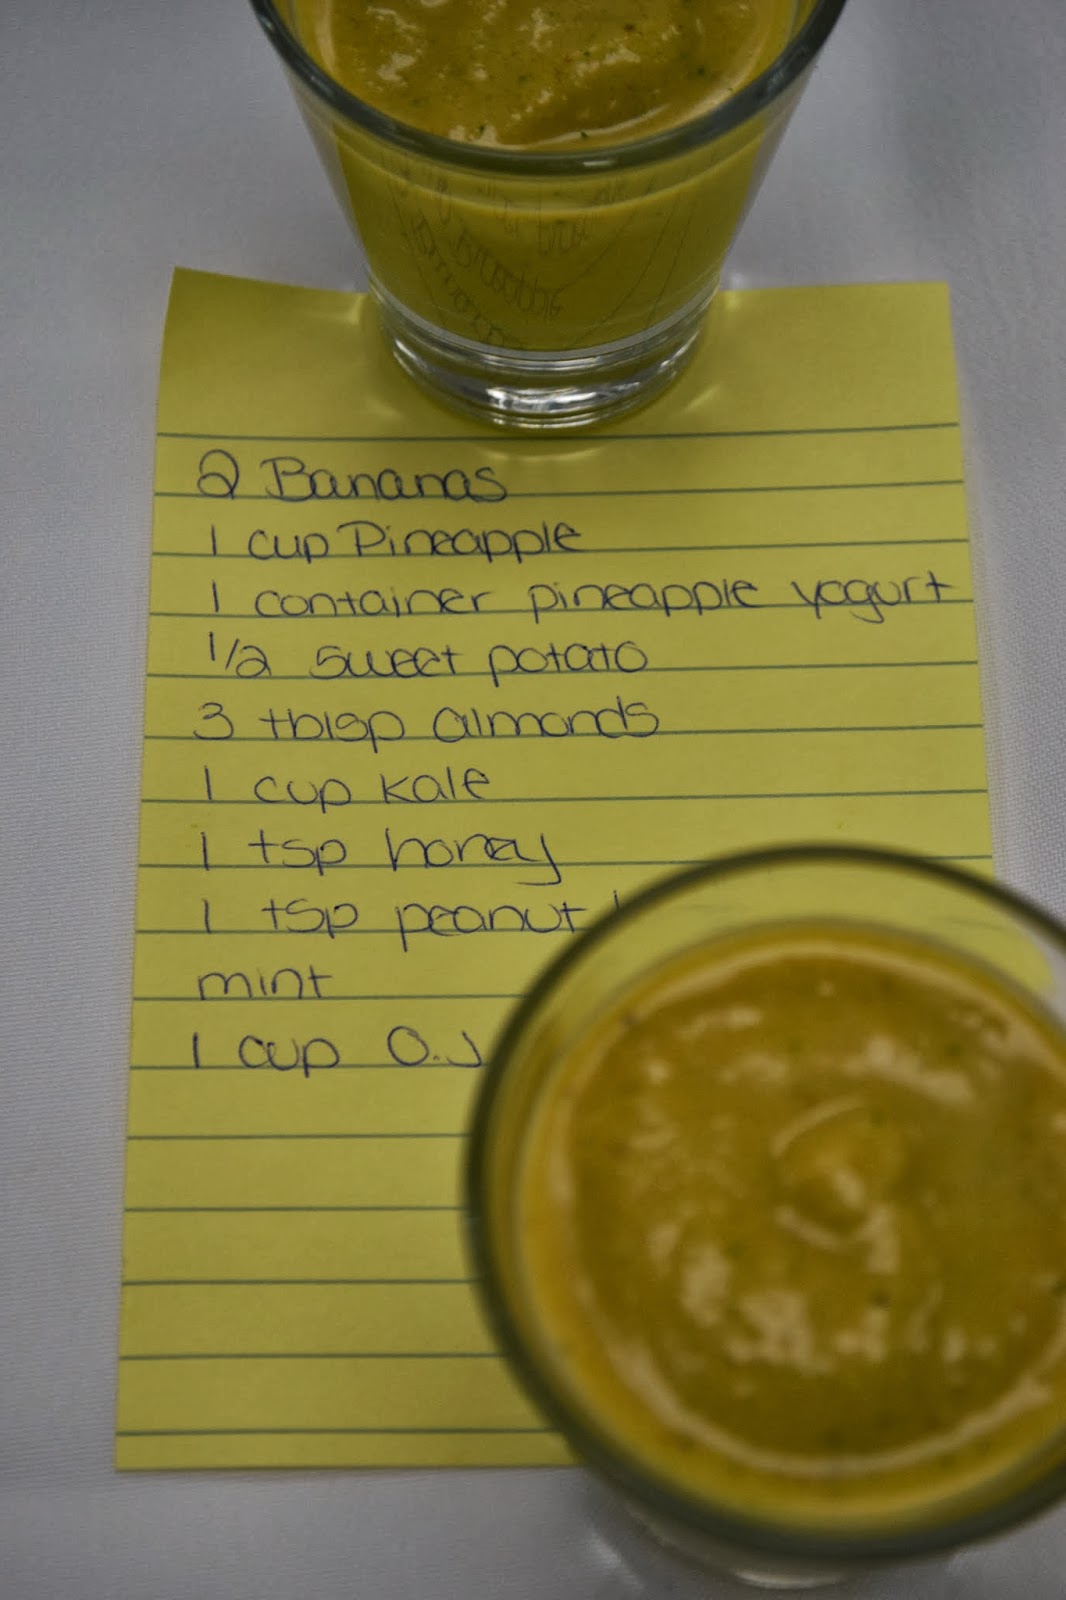 2 Bananas
1 cup Pineapple
1 container pineapple yogurt
1/2 sweet potato
3 tblsp almonds
1 cup kale
1 tsp honey
1 tsp peanut
mint
1 cup O.J